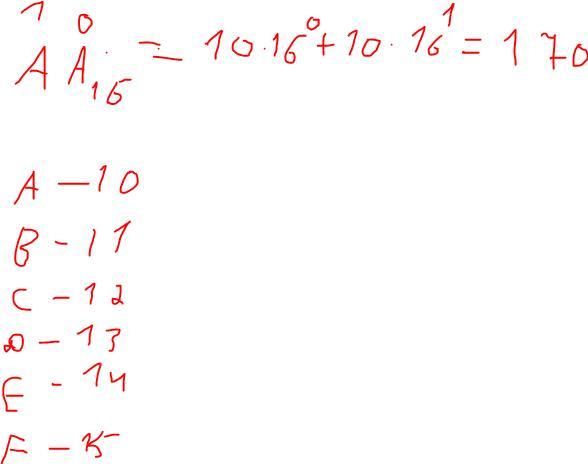 1 0
A A₁₆ = 10·16⁰ + 10·16¹ = 170
A – 10
B - 11
C - 12
D - 13
E - 14
F - 15